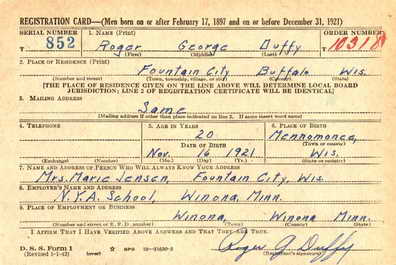 REGISTRATION CARD—(Men born on or after February 17, 1897 and on or before December 31, 1921)
SERIAL NUMBER 1. NAME (Print) ORDER NUMBER
852 Roger George Duffy 10318
(First) (Middle) (Last)
2. PLACE OF RESIDENCE (Print)
Fountain City Buffalo Wis.
(Number and street) (Town, township, village, or city) (County) (State)
[THE PLACE OF RESIDENCE GIVEN ON THE LINE ABOVE WILL DETERMINE LOCAL BOARD
JURISDICTION; LINE 2 OF REGISTRATION CERTIFICATE WILL BE IDENTICAL]
3. MAILING ADDRESS
Same
[Mailing address if other than place indicated on line 2. If same insert word same]
4. TELEPHONE 5. AGE IN YEARS 6. PLACE OF BIRTH
20 Mennomonee,
DATE OF BIRTH (Town or county)
Nov. 16 1921 Wis.
(Exchange) (Number) (Mo.) (Day) (Yr.) (State or country)
7. NAME AND ADDRESS OF PERSON WHO WILL ALWAYS KNOW YOUR ADDRESS
Mrs. Marie Jensen, Fountain City, Wis.
8. EMPLOYER'S NAME AND ADDRESS
N.Y.A. School, Winona, Minn.
9. PLACE OF EMPLOYMENT OR BUSINESS
Winona, Winona Minn.
(Number and street or R. F. D. number) (Town) (County) (State)
I AFFIRM THAT I HAVE VERIFIED ABOVE ANSWERS AND THAT THEY ARE TRUE.
D. S. S. Form 1
(Revised 1-1-42) (over) GPO Roger G. Duffy
(Registrant's signature)